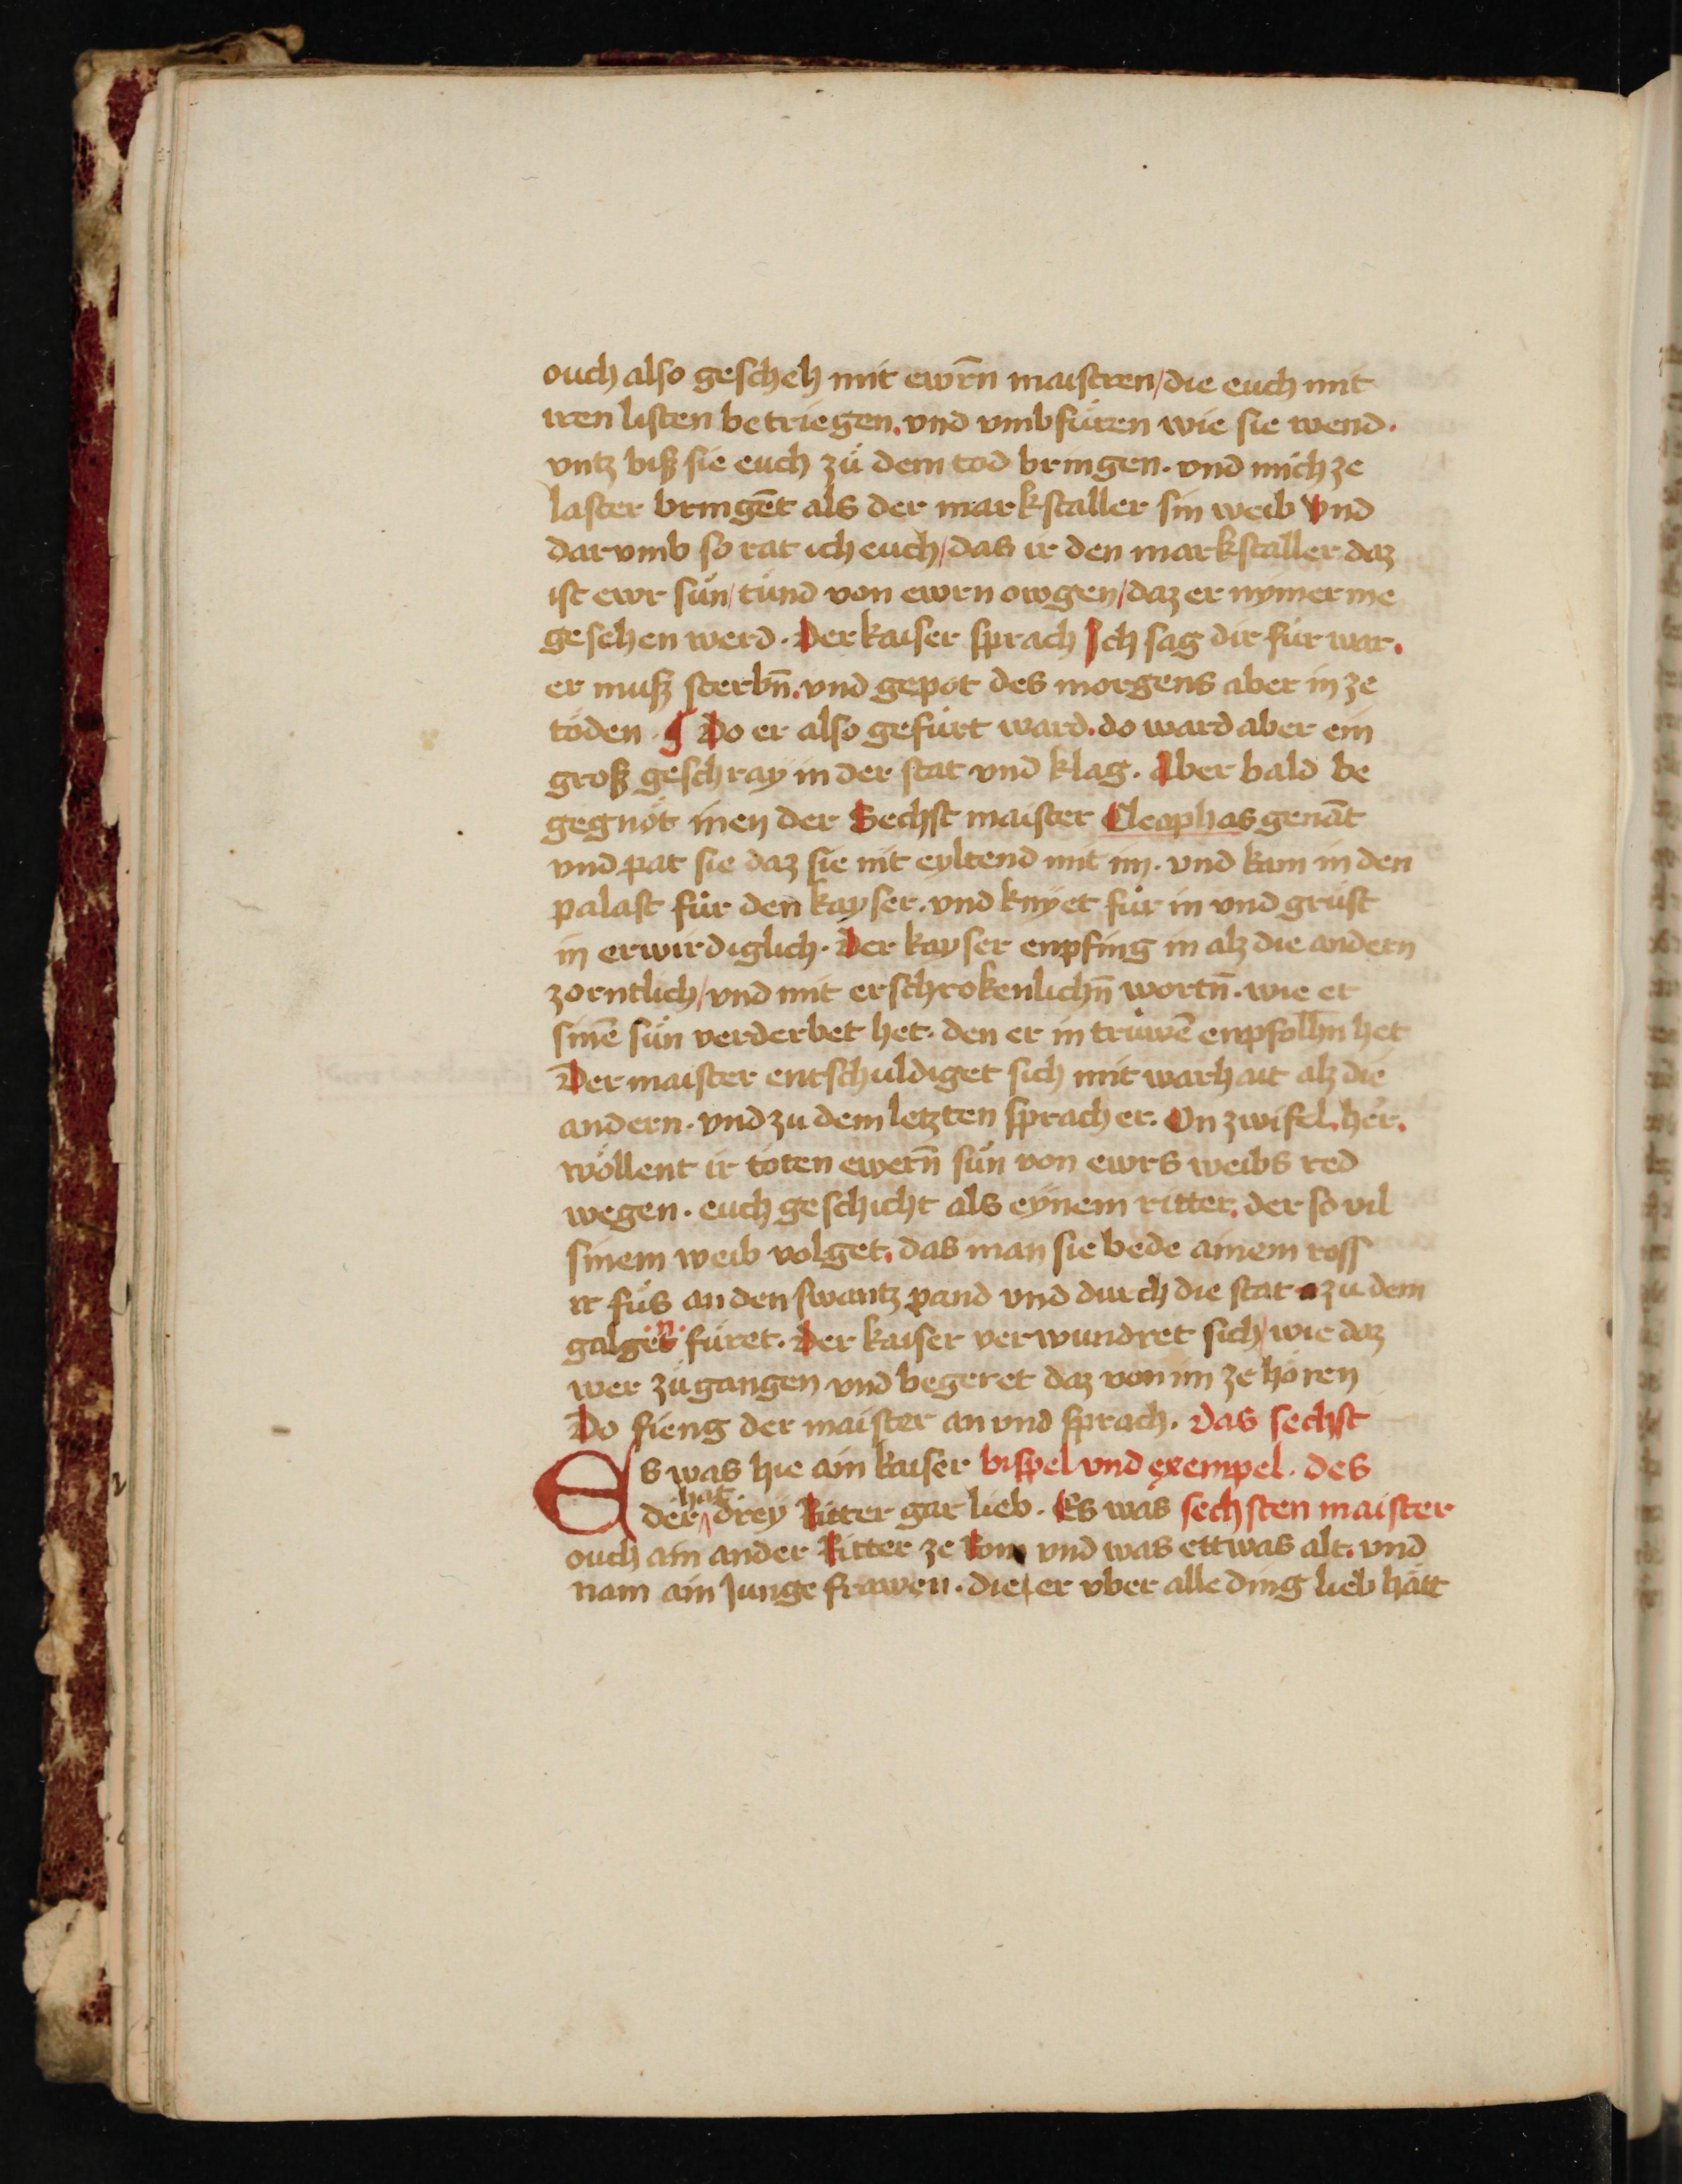 ouch also gescheh mit ewrn̄ maistren/die euch mit
iren listen betriegen. vnd vmbfüren wie sie wend.
vntz biß sie euch zů dem tod bringen. vnd mich ze
laster bringēt als der markstaller sin weib Vnd
darvmb so rat ich euch/das ir den markstaller daz
ist ewr sůn/tůnd von ewrn owgen/daz er nymer me
gesehen werd. Der kaiser sprach Ich sag dir für war.
er muß sterbn̄. vnd gepot des morgens aber in ze
töden. ¶ Do er also gefürt ward. do ward aber ein
groß geschray in der stat vnd klag. Aber bald be
gegnöt inen der Sechst maister Cleophas genāt
vnd pat sie daz sie nit eyltend mit im. vnd kam in den
palast für den kayser. vnd knyet für in vnd grüst
in erwirdiglich. Der kayser enpfing in alz die andern
zorntlich/vnd mit erschrokenlichn̄ wortn̄. wie er
sinē sůn verderbet het. den er in trüwē enpfolhn̄ het
Der maister entschuldiget sich mit warhait alz die
andern. vnd zu dem letzten sprach er. On zwifel. her.
wöllent ir töten ewern̄ sůn von ewrs weibs red
wegen. euch geschicht als eynem ritter. der so vil
sinem weib volget. das man sie bede ainem ross
ir füs an den swantz pand vnd durch die stat zu dem
galgen füret. Der kaiser verwundret sich/wie daz
wer zůgangen vnd begeret daz von im ze hören
Do fieng der maister an vnd sprach. Das sechst
Es was hie ain kaiser bispel vnd exempel. des
der hat drey Ritter gar lieb. Es was sechsten maister
ouch ain ander Ritter ze Rom vnd was ettwas alt. vnd
nam ain Junge frawen. die er vber alle ding lieb hatt